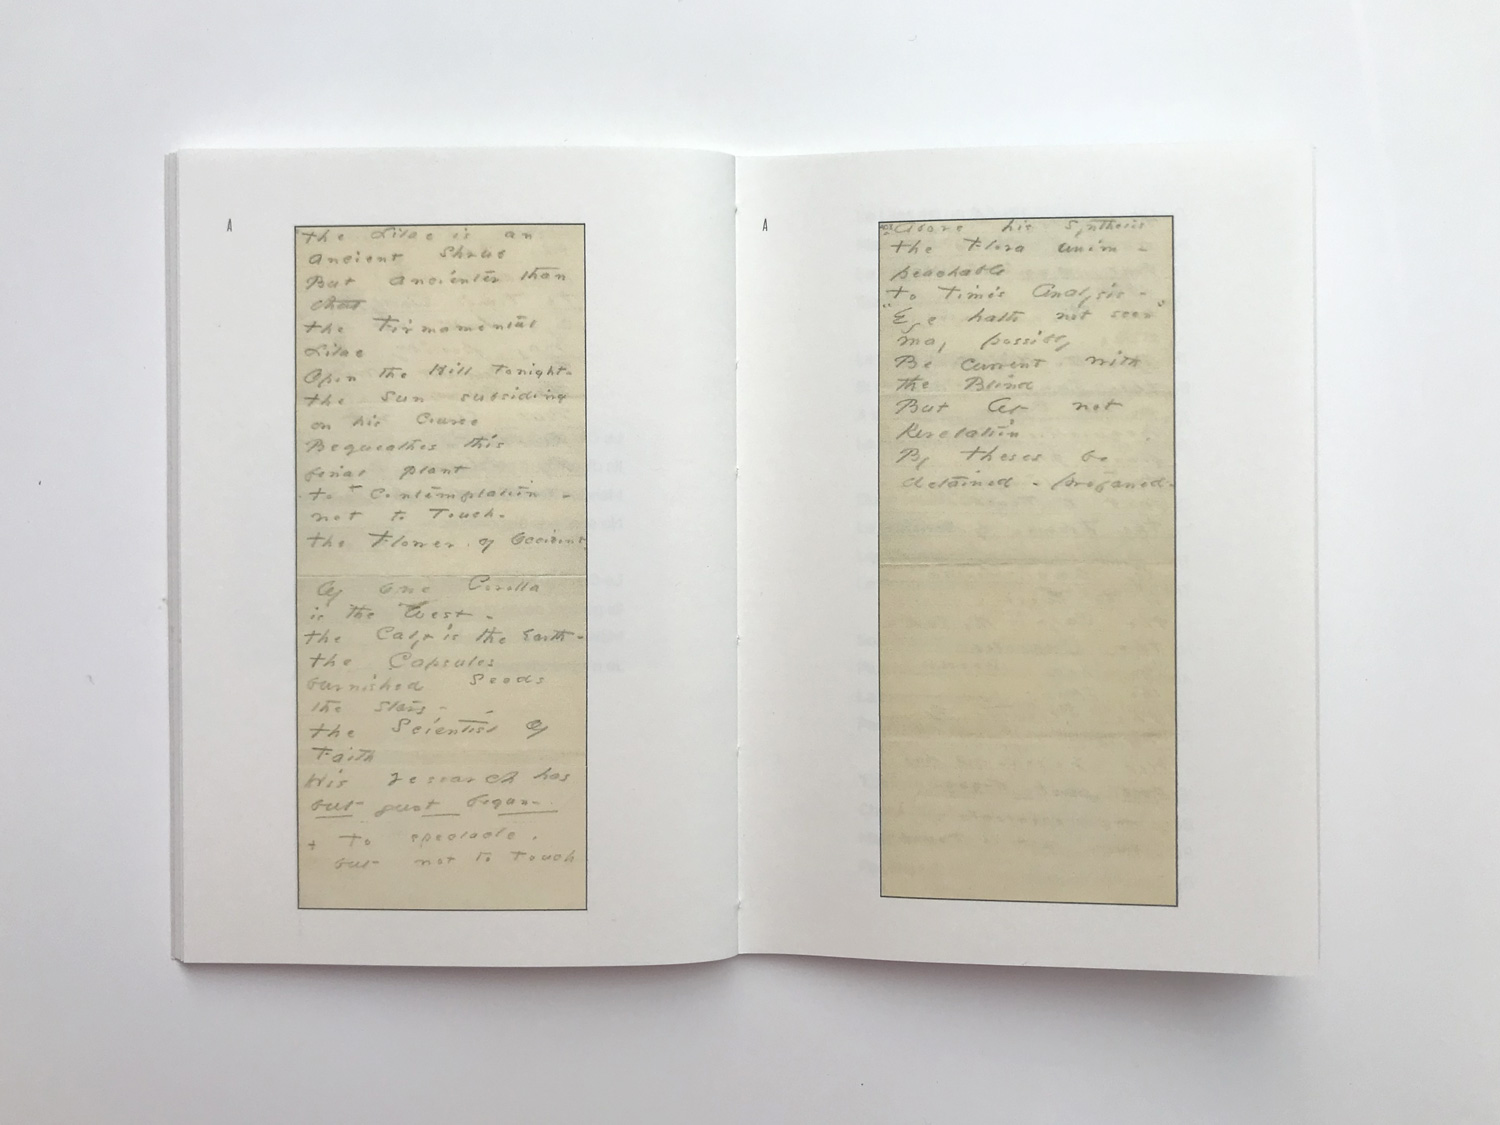 A
The Lilac is an
ancient Shrub
But ancienter than
that
The Firmamental
Lilac
Opon the Hill Tonight -
The Sun subsiding
on his Course
Bequeathes this
final plant
To + Contemplation -
not to Touch -
The Flower of Occident
Of one Corolla
is the West -
The Calyx is the Earth -
The Capsules
burnished Seeds
the Stars -
The Scientist of
Faith
His research has
but just begun -
+ To spectacle .
but not to Touch
A
Above his Synthesis
The Flora unim -
peachable
To Time's Analysis -
"Eye hath not seen"
may possibly
Be current with
the Blind
But let not
Revelation
By theses be
detained - profaned -